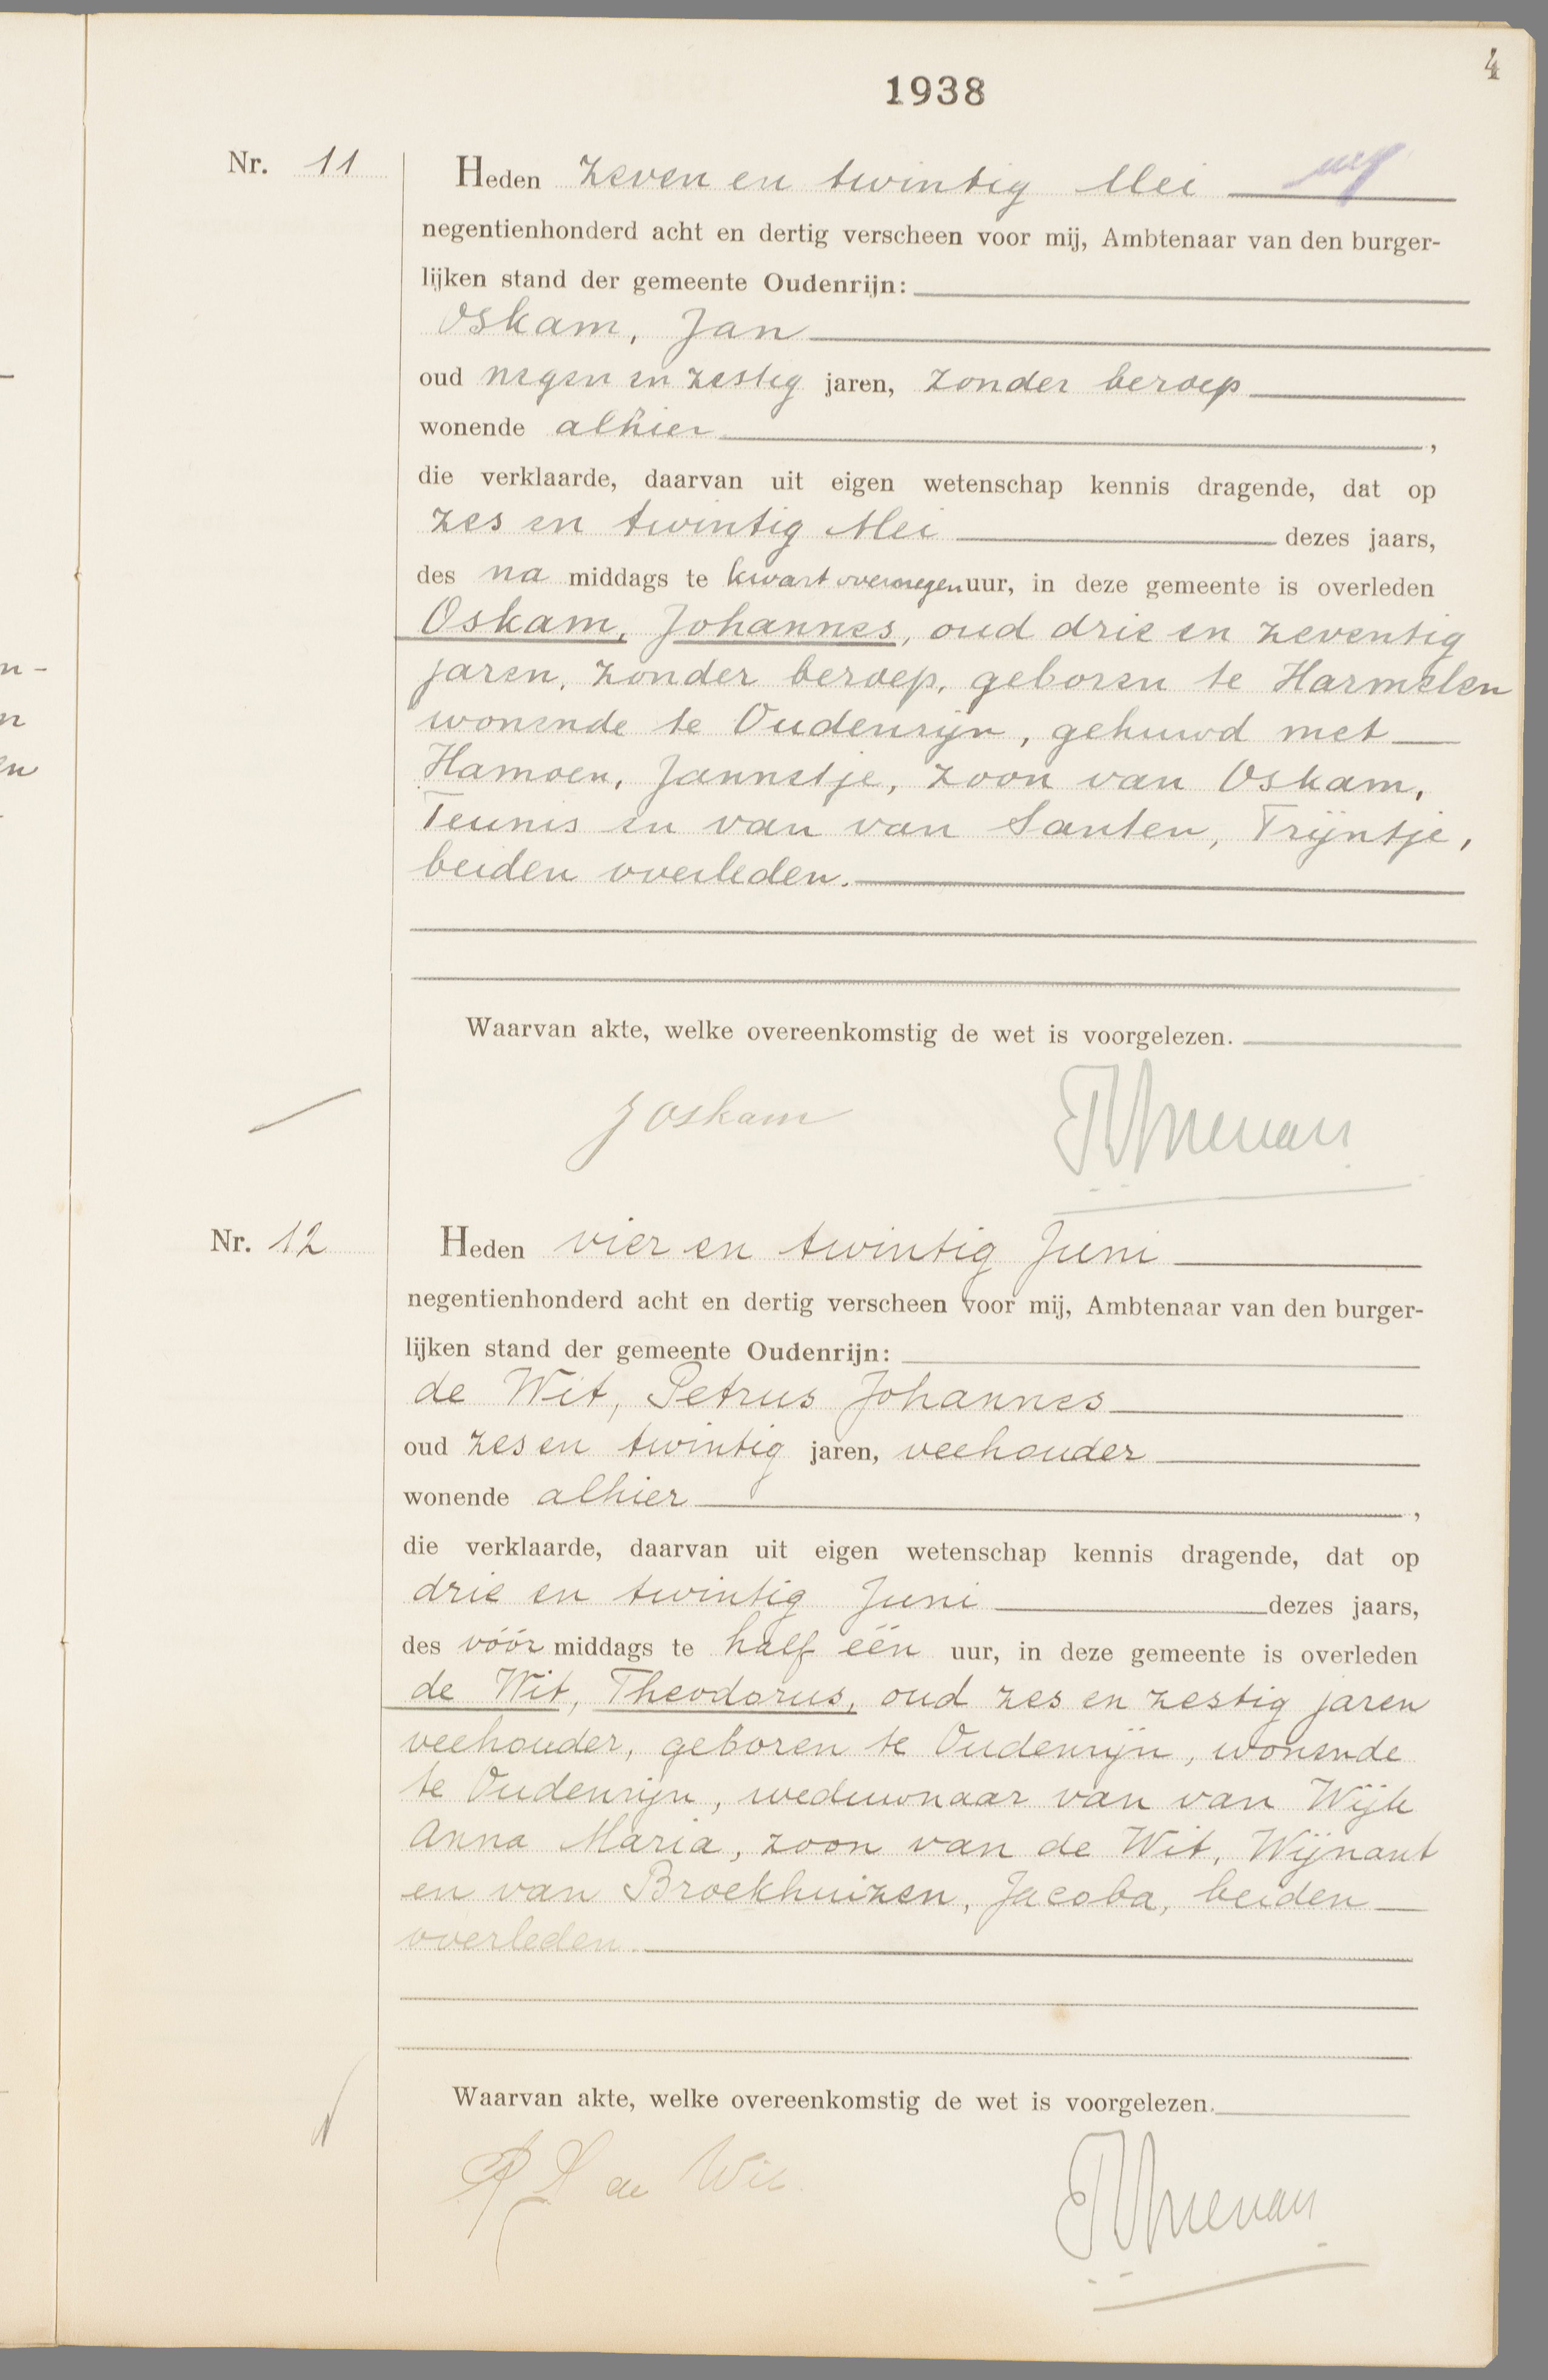 4
1938
Nr. 11
Heden zeven en twintig Mei
negentienhonderd acht en dertig verscheen voor mij, Ambtenaar van den burger-
lijken stand der gemeente Oudenrijn:
Oskam, Jan
oud negen en zestig jaren, zonder beroep
wonende alhier,
die verklaarde, daarvan uit eigen wetenschap kennis dragende, dat op
zes en twintig Mei dezes jaars,
des na middags te kwart over negen uur, in deze gemeente is overleden
Oskam, Johannes, oud drie en zeventig
jaren, zonder beroep, geboren te Harmelen
wonende te Oudenrijn, gehuwd met
Hamoen, Jannetje, zoon van Oskam,
Teunis en van van Santen, Trijntje,
beiden overleden.
Waarvan akte, welke overeenkomstig de wet is voorgelezen.
J Oskam
Nr. 12
Heden vier en twintig Juni
negentienhonderd acht en dertig verscheen voor mij, Ambtenaar van den burger-
lijken stand der gemeente Oudenrijn:
de Wit, Petrus Johannes
oud zes en twintig jaren, veehouder
wonende alhier,
die verklaarde, daarvan uit eigen wetenschap kennis dragende, dat op
drie en twintig Juni dezes jaars,
des vóór middags te half één uur, in deze gemeente is overleden
de Wit, Theodorus, oud zes en zestig jaren
veehouder, geboren te Oudenrijn, wonende
te Oudenrijn, weduwnaar van van Wijk
Anna Maria, zoon van de Wit, Wijnant
en van Broekhuizen, Jacoba, beiden
overleden.
Waarvan akte, welke overeenkomstig de wet is voorgelezen.
de Wit